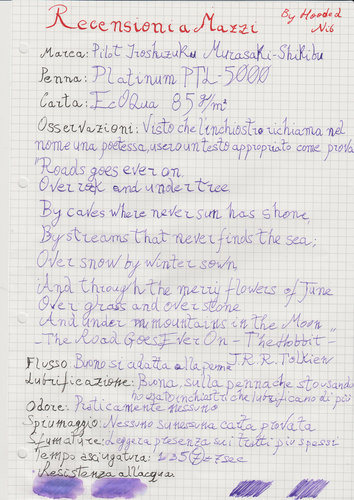 Recensioni a Mazzi
By Hooded Nib
Marca: Pilot Iroshizuku Murasaki-Shikibu
Penna: Platinum PTL-5000
Carta: EcOQua 85 g/m²
Osservazioni: Visto che l'inchiostro richiama nel
nome una poetessa, userò un testo appropriato come prova
"Roads goes ever on,
Over rock and under tree,
By caves where never sun has shone,
By streams that never finds the sea;
Over snow by winter sown,
And through the merry flowers of June
Over grass and over stone
And under mimountains in the Moon „
-The Road Goes Ever On - The Hobbit -
J.R.R. Tolkien
Flusso: Buono si adatta alla penna
Lubrificazione: Buona, sulla penna che sto usando
ho usato inchiostri che lubrificano di più
Odore: Praticamente nessuno
Spiumaggio: Nessuno su nessuna carta provata
Sfumature: Leggera presenza sui tratti più spessi
Tempo asciugatura: 1 2 3 5 7 = 7 sec
·Resistenza all'acqua: